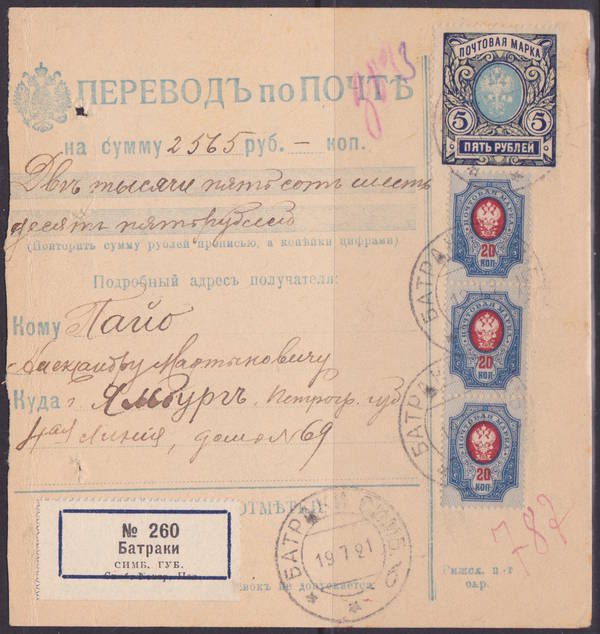 ПЕРЕВОДЪ по ПОЧТѢ
на сумму 2565 руб. – коп.
Двѣ тысячи пять сотъ шесть
десятъ пять рублей
(Повторить сумму рублей прописью, а копѣйки цифрами)
Подробный адресъ получателя:
Кому Пайо
Александру Мартыновичу
Куда г Ямбургъ, Петрогр. губ
4ая Линія, домъ № 69
ОТМѢТКИ
№ 260
Батраки
СИМБ. ГУБ.
не допускается.
ПОЧТОВАЯ МАРКА
5 5
ПЯТЬ РУБЛЕЙ
ПОЧТОВАЯ МАРКА
20
КОП
ПОЧТОВАЯ МАРКА
20
КОП
ПОЧТОВАЯ МАРКА
20
КОП
БАТРАК
БАТРАК
БАТРАКИ СИМБ.
19.7.21
787